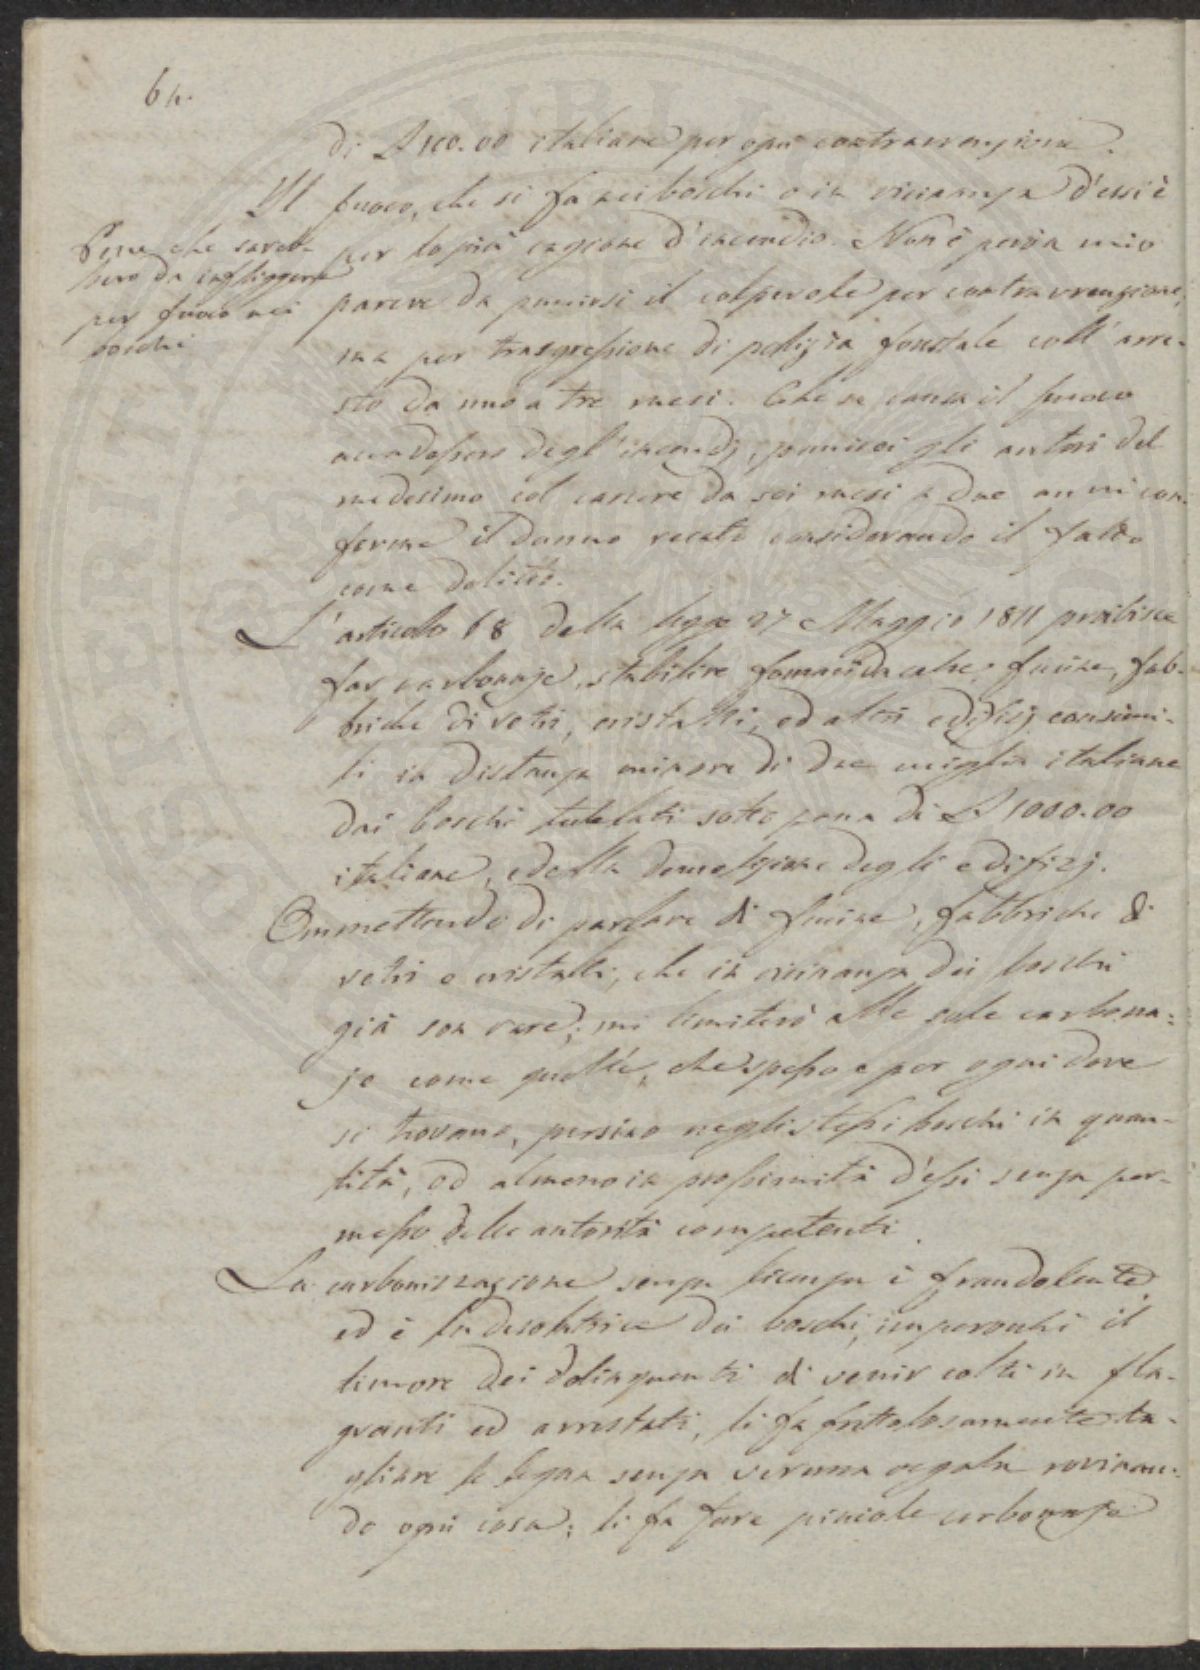 64.
di £ 100.00 italiane per ogni contravenzione.
Il fuoco, che si fa nei boschi o in vicinanza d'essi è
per lo più cagione d'incendio. Non è però a mio
parere da punirsi il colpevole per contravvenzione,
ma per trasgressione di polizia forestale coll' arre-
sto da uno a tre mesi. Che se causa il fuoco
accadessero degl' incendj, puniscei gli autori del
medesimo col carcere da sei mesi a due anni con-
forme il danno recato considerando il fatto
come delitto.
Pene che sareb-
bero da infliggersi
per fuoco nei
boschi
L' articolo 68 della legge 27 Maggio 1811 proibisce
far carbonaje, stabilire fornaci da calce, fucine, fab-
briche di vetri, cristalli, ed altri edifizj consimi-
li in distanza minore di due miglia italiane
dai boschi tutelati sotto pena di £ 1000.00
italiane, e della demolizione degli edifizj.
Ommettendo di parlare di fucine, fabbriche di
vetri e cristalli, che in vicinanza dei boschi
già son rare; mi limiterò alle sole carbona-
je come quelle, che spesso e per ogni dove
si trovano, persino negli stessi boschi in quan-
tità, od almeno in prossimità d'essi senza per-
messo delle autorità competenti.
La carbonizzazione senza licenza è fraudolente,
ed è la desolatrice dei boschi, imperocchè il
timore dei delinquenti di venir colti in fla-
granti ed arrestati, li fa frettolosamente ta-
gliare le legna senza veruna regola rovinan-
do ogni cosa; li fa fare picciole carbonaje